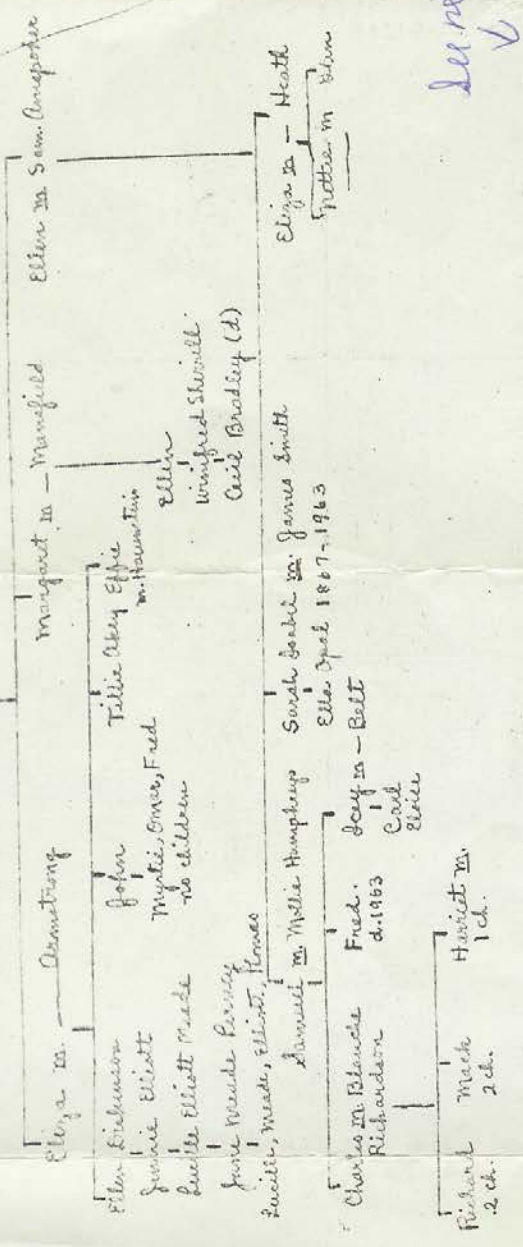 Eliza m. — Armstrong
Margaret m — Mansfield
Ellen m Sam. Amspoker
Ellen Dickinson
Jennie Elliott
Lucille Elliott Meade
Jane Meade
Lucille, Meade, Elliott,
John
Myrtie, Omar, Fred
no children
Tillie Akey
Effie
m. Hauenstein
Ellen
Winifred Sherrill
Cecil Bradley (d)
Samuel m. Mollie Humphreys
Sarah Isabel m. James Smith
Ella Opal 1867-1963
Eliza m — Heath
Nettie m
Charles m Blanche
Richardson
Fred.
d. 1963
Icey m — Belt
Carl
Eloise
Richard
2 ch.
Mack
2 ch.
Harriet m.
1 ch.